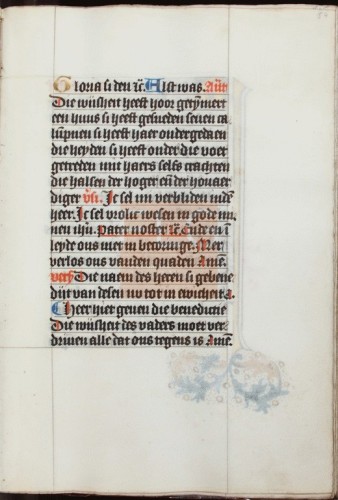 Gloria si den vad̄. Alst was. Añt
Die wijsheit heeft hoor getȳmert
een huus si heeft gesneden seuen ca
lūpnen si heeft haer ondergedaen
die heyden si heeft onder die voet
getreden mit haers selfs crachten
die halsen der hoger en̄ der houaer
diger v̄si. Ic sel mi verbliden indē
heer. Ic sel vrolic wesen in gode mi
nen ihū. Pater noster etc̄. Ende en
leyde ons niet in becoringe. Mer
verlos ons vanden quaden Amē.
vers Die naem des heren si gebene
dijt van desen nv tot in ewicheit A.
Heer hier geuen die benedictie
Die wijsheit des vaders moet ver
driuen alle dat ons tegens is Amē.